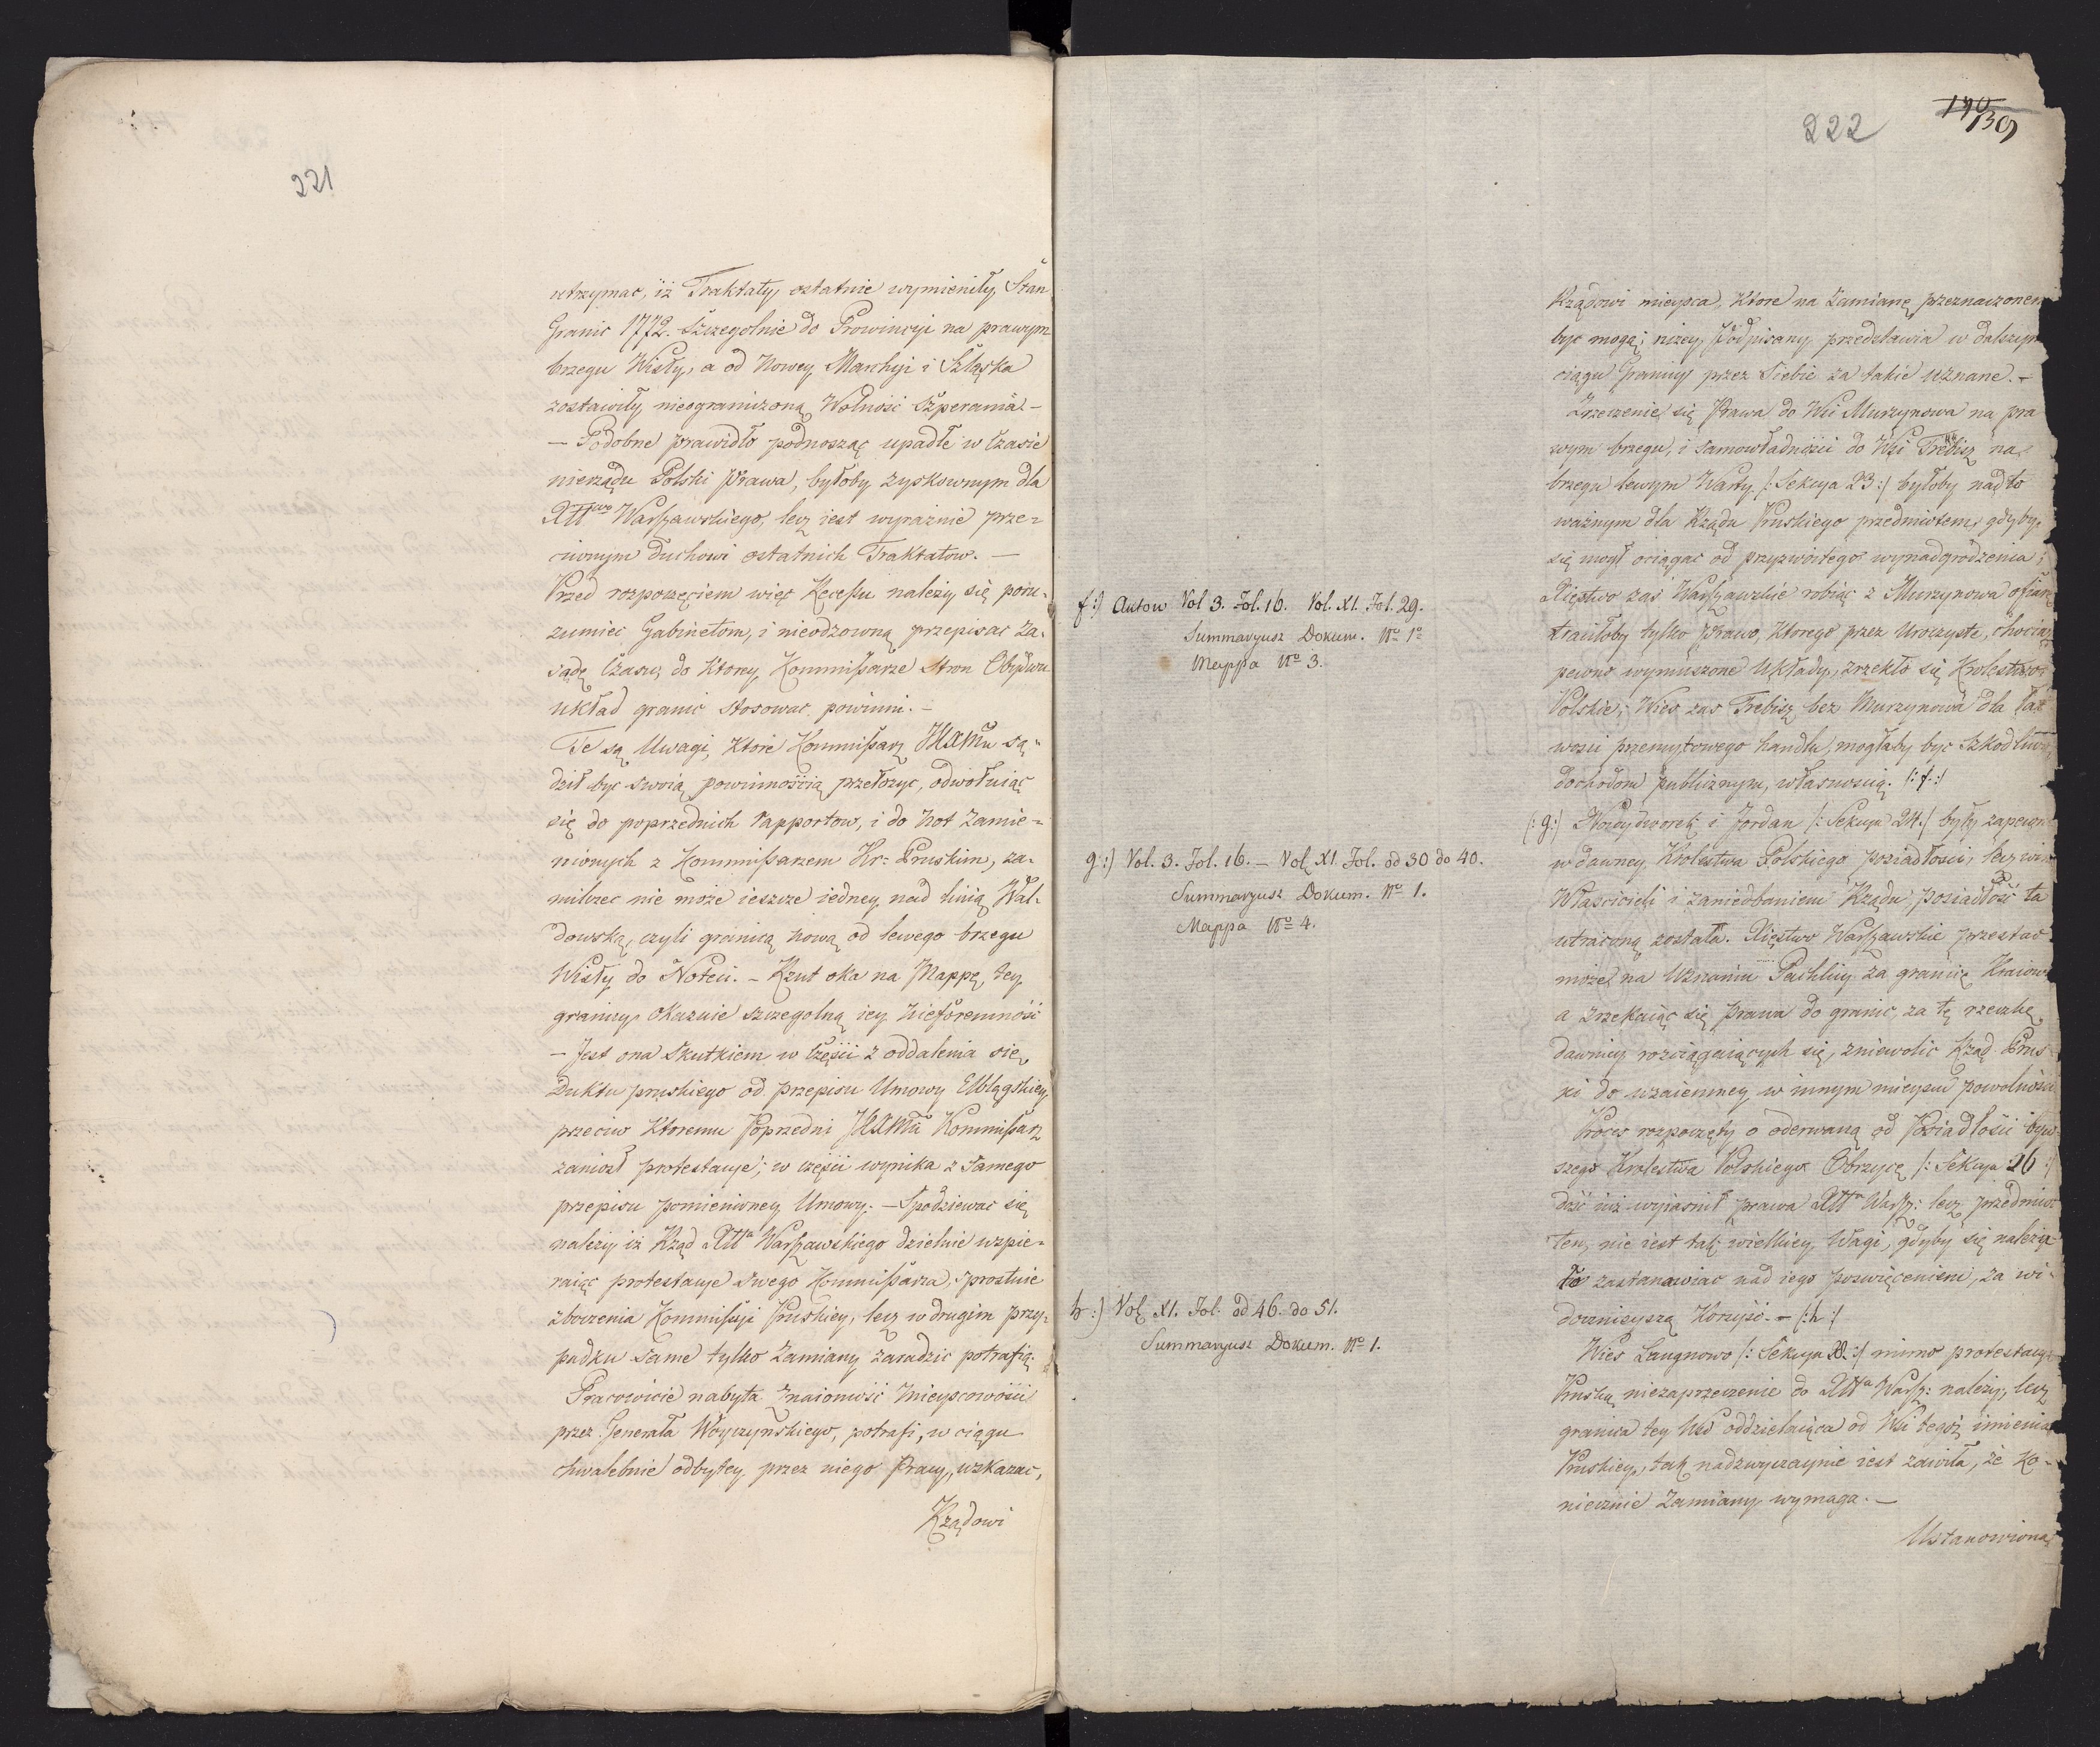 221
utrzymac, iż Traktaty, ostatnie wymieniły Stan
Granic 1772. szczegolnie do Prowincyi na prawym
brzegu Wisły, a od Nowey Marchyi i Szląska
zostawiły nieograniczoną Wolność Szperania. —
— Podobne prawidło podnosząc upadłe w Czasie
nierządu Polski Prawa, byłoby zyskownym dla
Xttwa Warszawskiego, lecz iest wyraźnie prze=
ciwnym Duchowi ostatnich Traktatow. —
Przed rozpoczęciem więc Recessu należy się poru=
zumiec Gabinetom, i nieodzowną przepisac Za=
sadę Czasu, do ktorey, Kommissarze Stron Obydwu
układ granic stosowac powinni. —
Te są Uwagi, ktore Kommissarz są=
dził byc swoią powinnością przełożyc, odwołuiąc
się do poprzednich rapportow, i do Not Zamie=
nionych z Kommissarzem Kr: Pruskim, za=
milczec nie może ieszcze iedney nad linią Wal=
dowską, czyli granicą nową od lewego brzegu
Wisły do Noteci. — Rzut oka na Mappę, tey
granicy okazuie szczegolną iey Nieforemność
— Jest ona Skutkiem w Części z oddalenia się
Duktu pruskiego od przepisu Umowy Elblągskiey
przeciw ktoremu Poprzedni Kommissarz
zaniosł protestacye; w części wynika z Samego
przepisu pomienioney Umowy. — Spodziewac się
należy iż Rząd Xtta Warszawskiego dzielnie wspie=
raiąc protestacye Swego Kommissarza, sprostuie
zboczenia Kommissyi Pruskiey, lecz w drugim przy=
padku same tylko Zamiany zaradzic potrafią.
Pracowicie nabyta Znaiomość Mieyscowości
przez Generała Woyczyńskiego, potrafi, w ciągu
chwalebnie odbytey przez niego Pracy, wskazac,
Rządowi
222
139
f:) Aktow Vol 3. Fol. 16. Vol. XI. Fol. 29.
Summaryusz Dokum. No 1o
Mappa No 3.
g:) Vol. 3. Fol. 16. — Vol. XI. Fol. od 30 do 40.
Summaryusz Dokum. No 1.
Mappa No 4.
h:) Vol. XI. Fol. od 46. do 51.
Summaryusz Dokum. No 1.
Rządowi mieysca, ktore na Zamianę przeznaczonem
byc mogą; niżey Podpisany przedstawia w dalszym
ciągu Granicy przez Siebie za takie uznane. —
Zrzeczenie się Prawa do Wsi Murzynowa na pra
wym brzegu, i samowładności do Wsi Trebisz na
brzegu lewym Warty /: Sekcya 23 :/ byłoby nadto
ważnym dla Rządu Pruskiego przedmiotem, gdyby
się mogł ociągac od przyzwoitego wynadgrodzenia;
Xięstwo zaś Warszawskie robiąc z Murzynowa ofiarę
traciłoby tylko Prawo, ktorego przez Uroczyste, chociaż
pewno wymuszone Układy, zrzekło się Krolestwo
Polskie; Wies zas Trebisz bez Murzynowa dla łat
wości przemytowego handlu, mogłaby byc szkodliwą
dochodom publicznym, własnością. /: f :/
/: g:/ Nowydworek i Jordan /: Sekcya 24. / były zapewne
w dawney Krolestwa Polskiego posiadłości, lecz win
Właścicieli i zaniedbaniem Rządu, posiadłość ta
utraconą została. Xięstwo Warszawskie przestac
może na Uznaniu Pachlicy za granicę Kraiową
a zrzekaiąc się Prawa do granic, za tę rzeczkę
dawniey rozciągaiących się, zniewolic Rząd Prus
ki do wzaiemney w innym mieyscu powolności
Proces rozpoczęty o oderwaną od Posiadłości byw=
szego Krolestwa Polskiego Obrzycę /: Sekcya 26 :/
dość iuż wyiasnił prawa Xtta Warsz: lecz przedmiot
ten, nie iest tak wielkiey Wagi, gdyby się należa=
ło zastanawiac nad iego poswięceniem, za wi=
docznieyszą Korzyść. — /: h :/
Wies Laugnowo /: Sekcya :/ mimo protestacye
Pruską niezaprzeczenie do Xtta Warsz: należy, lecz
granica tey Wsi oddzielaiąca od Wsi tegoż imienia
Pruskiey, tak nadzwyczaynie iest zawiła, że ko=
niecznie Zamiany wymaga. —
Ustanowioną